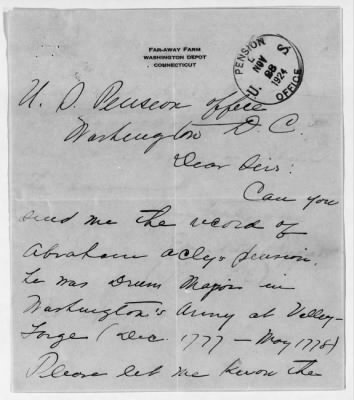 FAR-AWAY FARM
WASHINGTON DEPOT
CONNECTICUT
U. S. PENSION OFFICE
NOV 28 1924
U. S. Pension office
Washington D. C.
Dear Sir:
Can you
send me the record of
Abraham Acly's pension.
he was Drum Major in
Washington's Army at Valley-
Forge (Dec. 1777 — May 1778)
Please let me know the